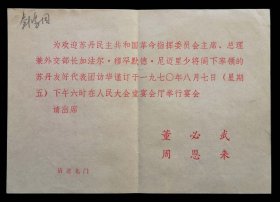 为欢迎苏丹民主共和国革命指挥委员会主席、总理
兼外交部长加法尔·穆罕默德·尼迈里少将阁下率领的
苏丹友好代表团访华谨订于一九七〇年八月七日(星期
五)下午六时在人民大会堂宴会厅举行宴会
请出席
董必武
周恩来
请进北门